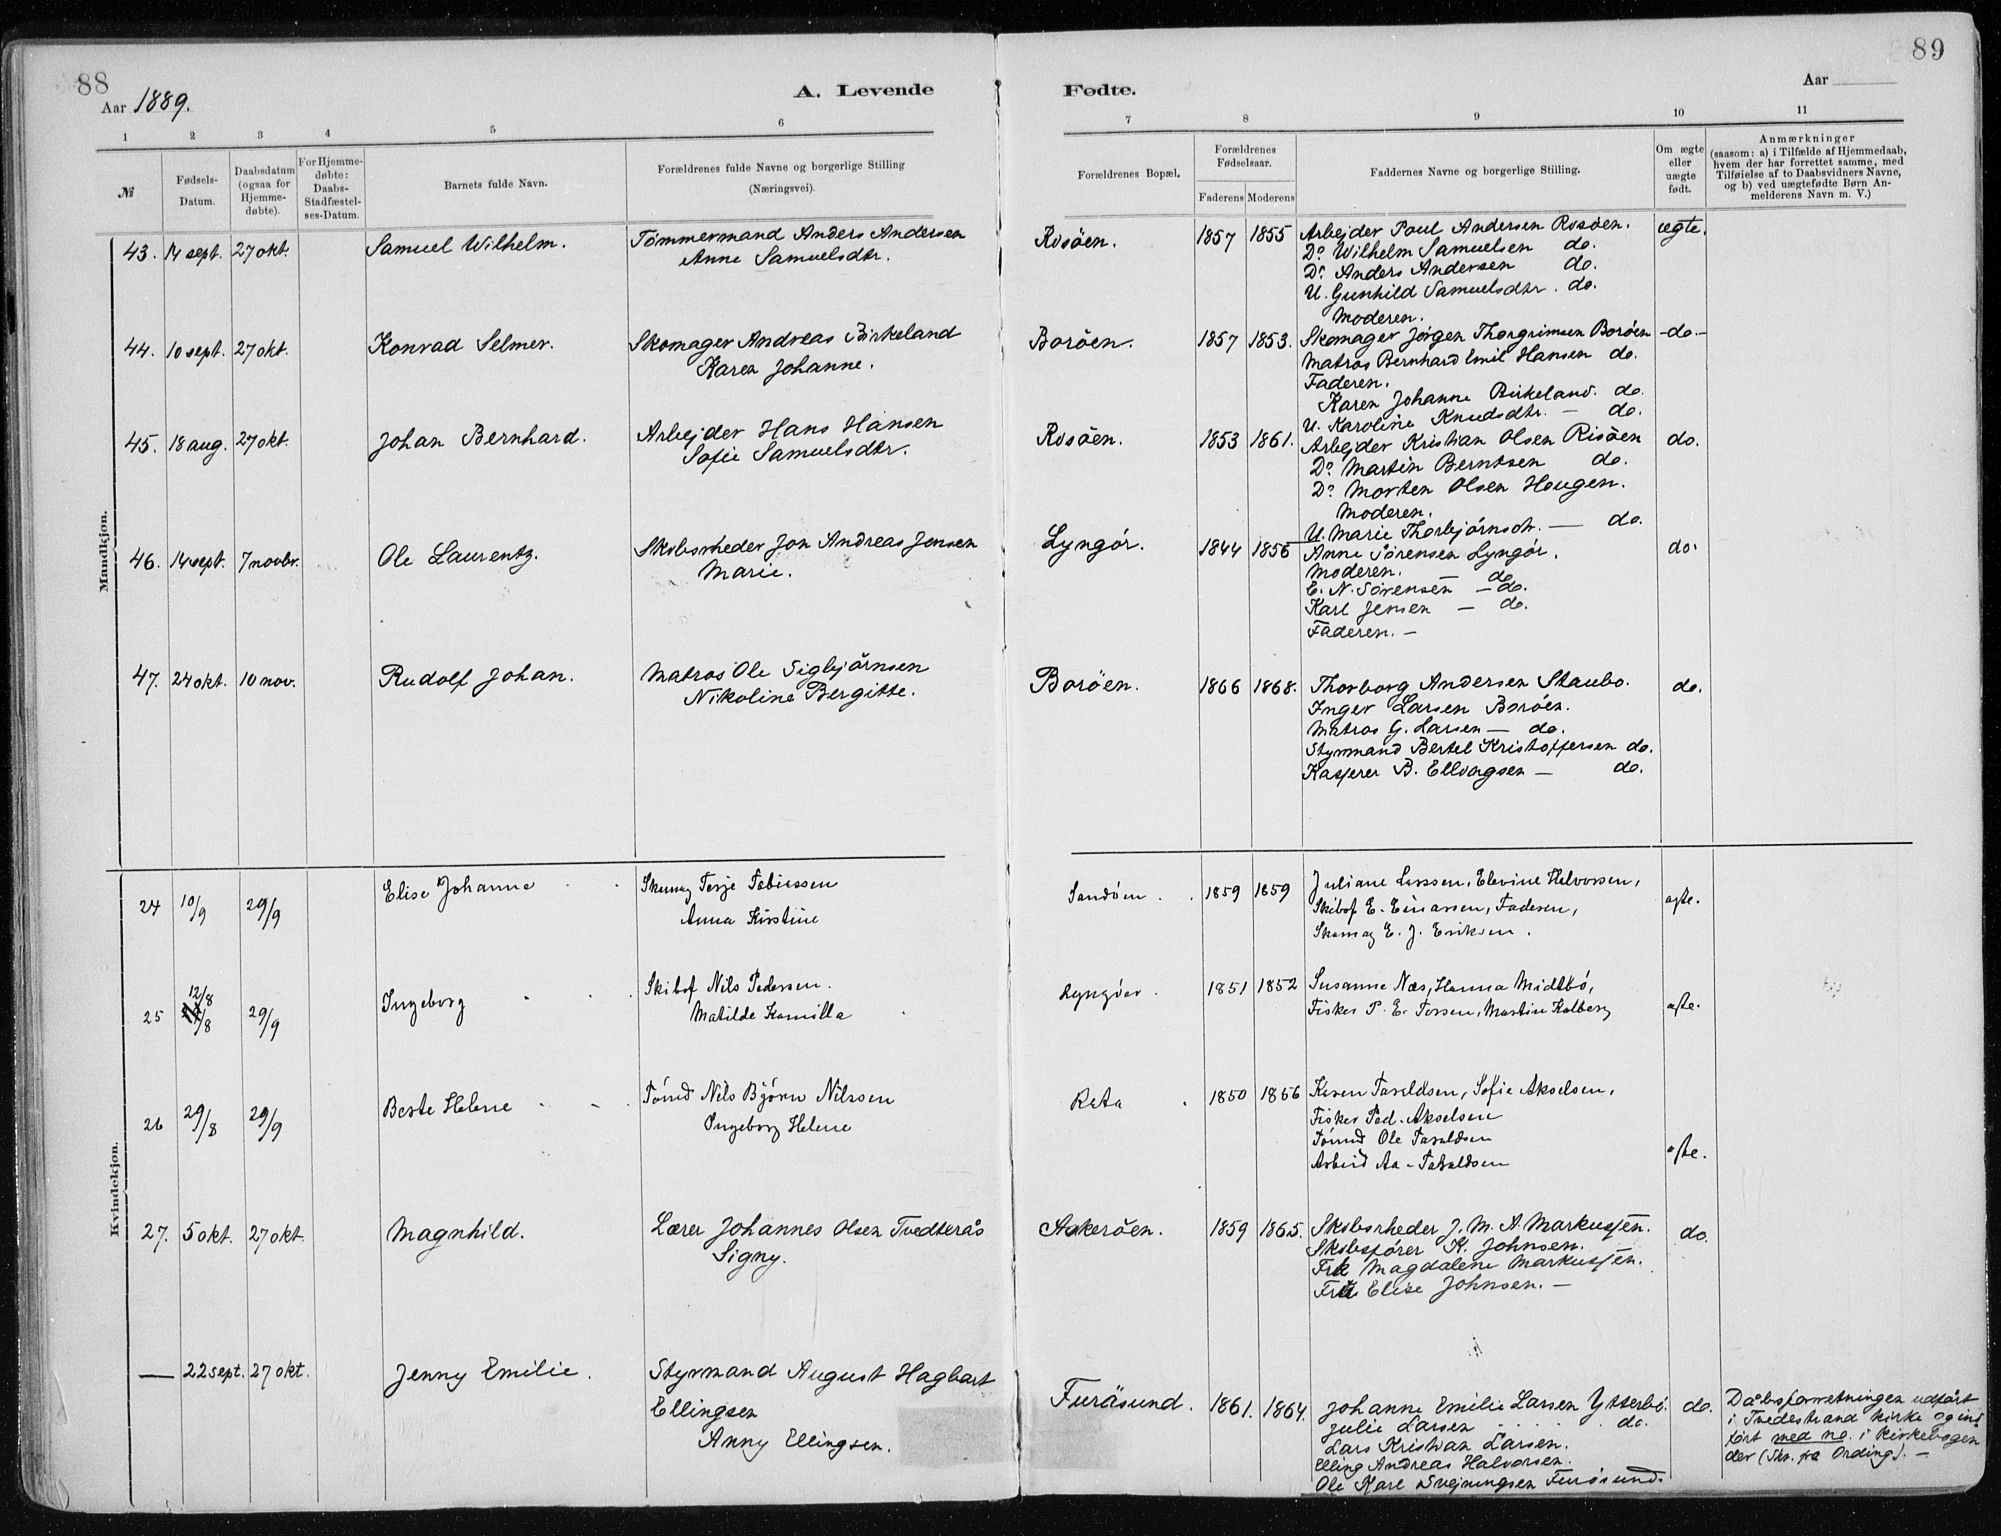 88
89
Aar 1889.
A. Levende
Fødte.
Aar
1
2
3
4
5
6
7
8
9
10
11
№
Fødsels-
Datum.
Daabsdatum
(ogsaa for
Hjemme-
døbte).
For Hjemme-
døbte:
Daabs-
Stadfæstel-
ses-Datum.
Barnets fulde Navn.
Forældrenes fulde Navne og borgerlige Stilling
(Næringsvei).
Forældrenes Bopæl.
Forældrenes
Fødselsaar.
Faderens
Moderens
Faddernes Navne og borgerlige Stilling.
Om ægte
eller
uægte
født.
Anmærkninger
(saasom: a) i Tilfælde af Hjemmedaab,
hvem der har forrettet samme, med
Tilføielse af to Daabsvidners Navne,
og b) ved uægtefødte Børn An-
melderens Navn m. V.)
Mandkjøn.
43. 14 sept. 27 okt. Samuel Wilhelm.
Tømmermand Anders Andersen
Anne Samuelsdtr.
Risöen. 1857 1855
Arbejder Poul Andersen Risöen.
Do Wilhelm Samuelsen do.
Do Anders Andersen do.
U. Gunhild Samuelsdtr. do.
Moderen.
ægte.
44. 10 sept. 27 okt. Konrad Selmer.
Skomager Andreas Birkeland
Karen Johanne.
Boröen. 1857 1853.
Skomager Jörgen Thorgrimsen Boröen
Matros Bernhard Emil Hansen do.
Faderen.
Karen Johanne Birkeland. do.
U. Karoline Knudsdtr. — do.
-do-
45. 18 aug. 27 okt. Johan Bernhard.
Arbejder Hans Hansen
Sofie Samuelsdtr.
Risöen. 1853 1861.
Arbejder Kristian Olsen Risöen
Do Martin Berntsen do.
Do Morten Olsen Hougen.
Moderen.
U. Marie Thorbjörnsdtr. — do.
do.
46. 14 sept. 7 novbr. Ole Laurentz.
Skibsrheder Jon Andreas Jensen
Marie.
Lyngör. 1844 1856
Anne Sörensen Lyngör.
Moderen. — do
E. N. Sörensen — do.
Karl Jensen — do.
Faderen. —
do.
47. 24 okt. 10 nov. Rudolf Johan.
Matros Ole Sigbjörnsen
Nikoline Bergitte.
Boröen. 1866 1868.
Thorborg Andersen Staubo.
Inger Larsen Boröen.
Matros G. Larsen — do.
Styrmand Bertel Kristoffersen do.
Kasserer B. Ellvogsen — do.
do.
Kvindekjøn.
24 10/9 29/9 Elise Johanne
Skomag Terje Tobiassen
Anna Kirstine
Sandöen. 1859 1859
Juliane Larssen, Elevine Helvorsen,
Skibsf E. Einarssen, Faderen,
Skomag E. J. Eriksen.
ægte.
25 12/8 29/9 Ingeborg
Skibsf Nils Pedersen.
Matilde Kamilla
Lyngöer. 1851 1852
Susanne Næs, Hanna Midtbö,
Fisker P. E. Torsen, Martin Kolberg
ægte.
26 29/8 29/9 Berte Helene
Tömd Nils Björn Nilssen
Ingeborg Helene
Reta 1850 1856
Karen Taraldsen, Sofie Akselsen,
Fisker Ped. Akselsen
Tömd Ole Taraldsen
Arbeid Aa. Taraldsen
ægte.
27. 5 okt. 27 okt. Magnhild.
Lærer Johannes Olsen Tvedterås
Signy.
Askeröen. 1859 1865.
Skibsrheder J. M. A. Markussen.
Skibsförer K. Johnsen.
Frk Magdalene Markussen.
Fru Elise Johnsen. —
do.
— 22 sept. 27 okt. Jenny Emilie.
Styrmand August Hagbart
Ellingsen
Anny Ellingsen.
Furösund. 1861. 1864.
Johanne Emilie Larsen Ytterbö.
Julie Larsen . . . . . do.
Lars Kristian Larsen.
Elling Andreas Halvorsen.
Ole Karl Svejnungsen Furösund.
do.
Dåbsforretningen udfört
i Tvedestrand kirke og ind
fört med no. i kirkebogen
der (Skr. fra Ording). —